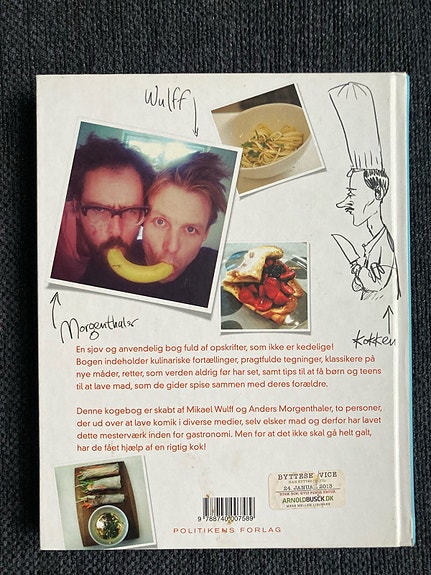 Wulff
Morgenthaler
Kokken
En sjov og anvendelig bog fuld af opskrifter, som ikke er kedelige!
Bogen indeholder kulinariske fortællinger, pragtfulde tegninger, klassikere på
nye måder, retter, som verden aldrig før har set, samt tips til at få børn og teens
til at lave mad, som de gider spise sammen med deres forældre.
Denne kogebog er skabt af Mikael Wulff og Anders Morgenthaler, to personer,
der ud over at lave komik i diverse medier, selv elsker mad og derfor har lavet
dette mesterværk inden for gastronomi. Men for at det ikke skal gå helt galt,
har de fået hjælp af en rigtig kok!
BYTTESERVICE
24. JANUAR 2013
ARNOLDBUSCK.DK
9 788740 007589
POLITIKENS FORLAG